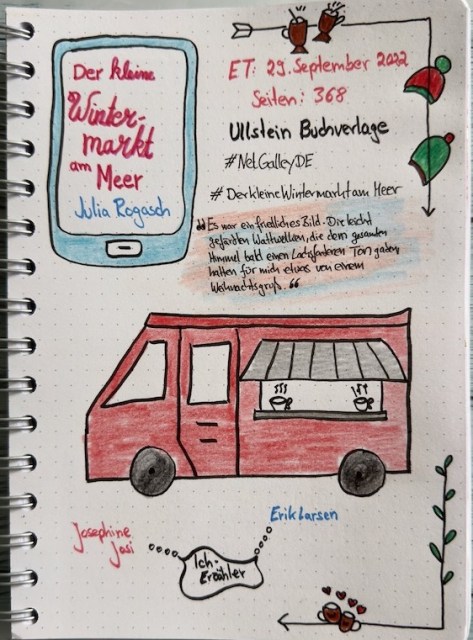 Der kleine
Winter-
markt
am
Meer
Julia Rogasch
ET: 29. September 2022
Seiten: 368
Ullstein Buchverlage
#NetGalleyDE
#DerkleineWintermarktam Meer
"Es war ein friedliches Bild. Die leicht
gefärbten Wattwolken, die dem gesamten
Himmel bald einen Lachsfarbenen Ton gaben,
hatten für mich etwas von einem
Weihnachtsgruß."
Josephine
Josi
Ich-
Erzähler
Erik Larsen